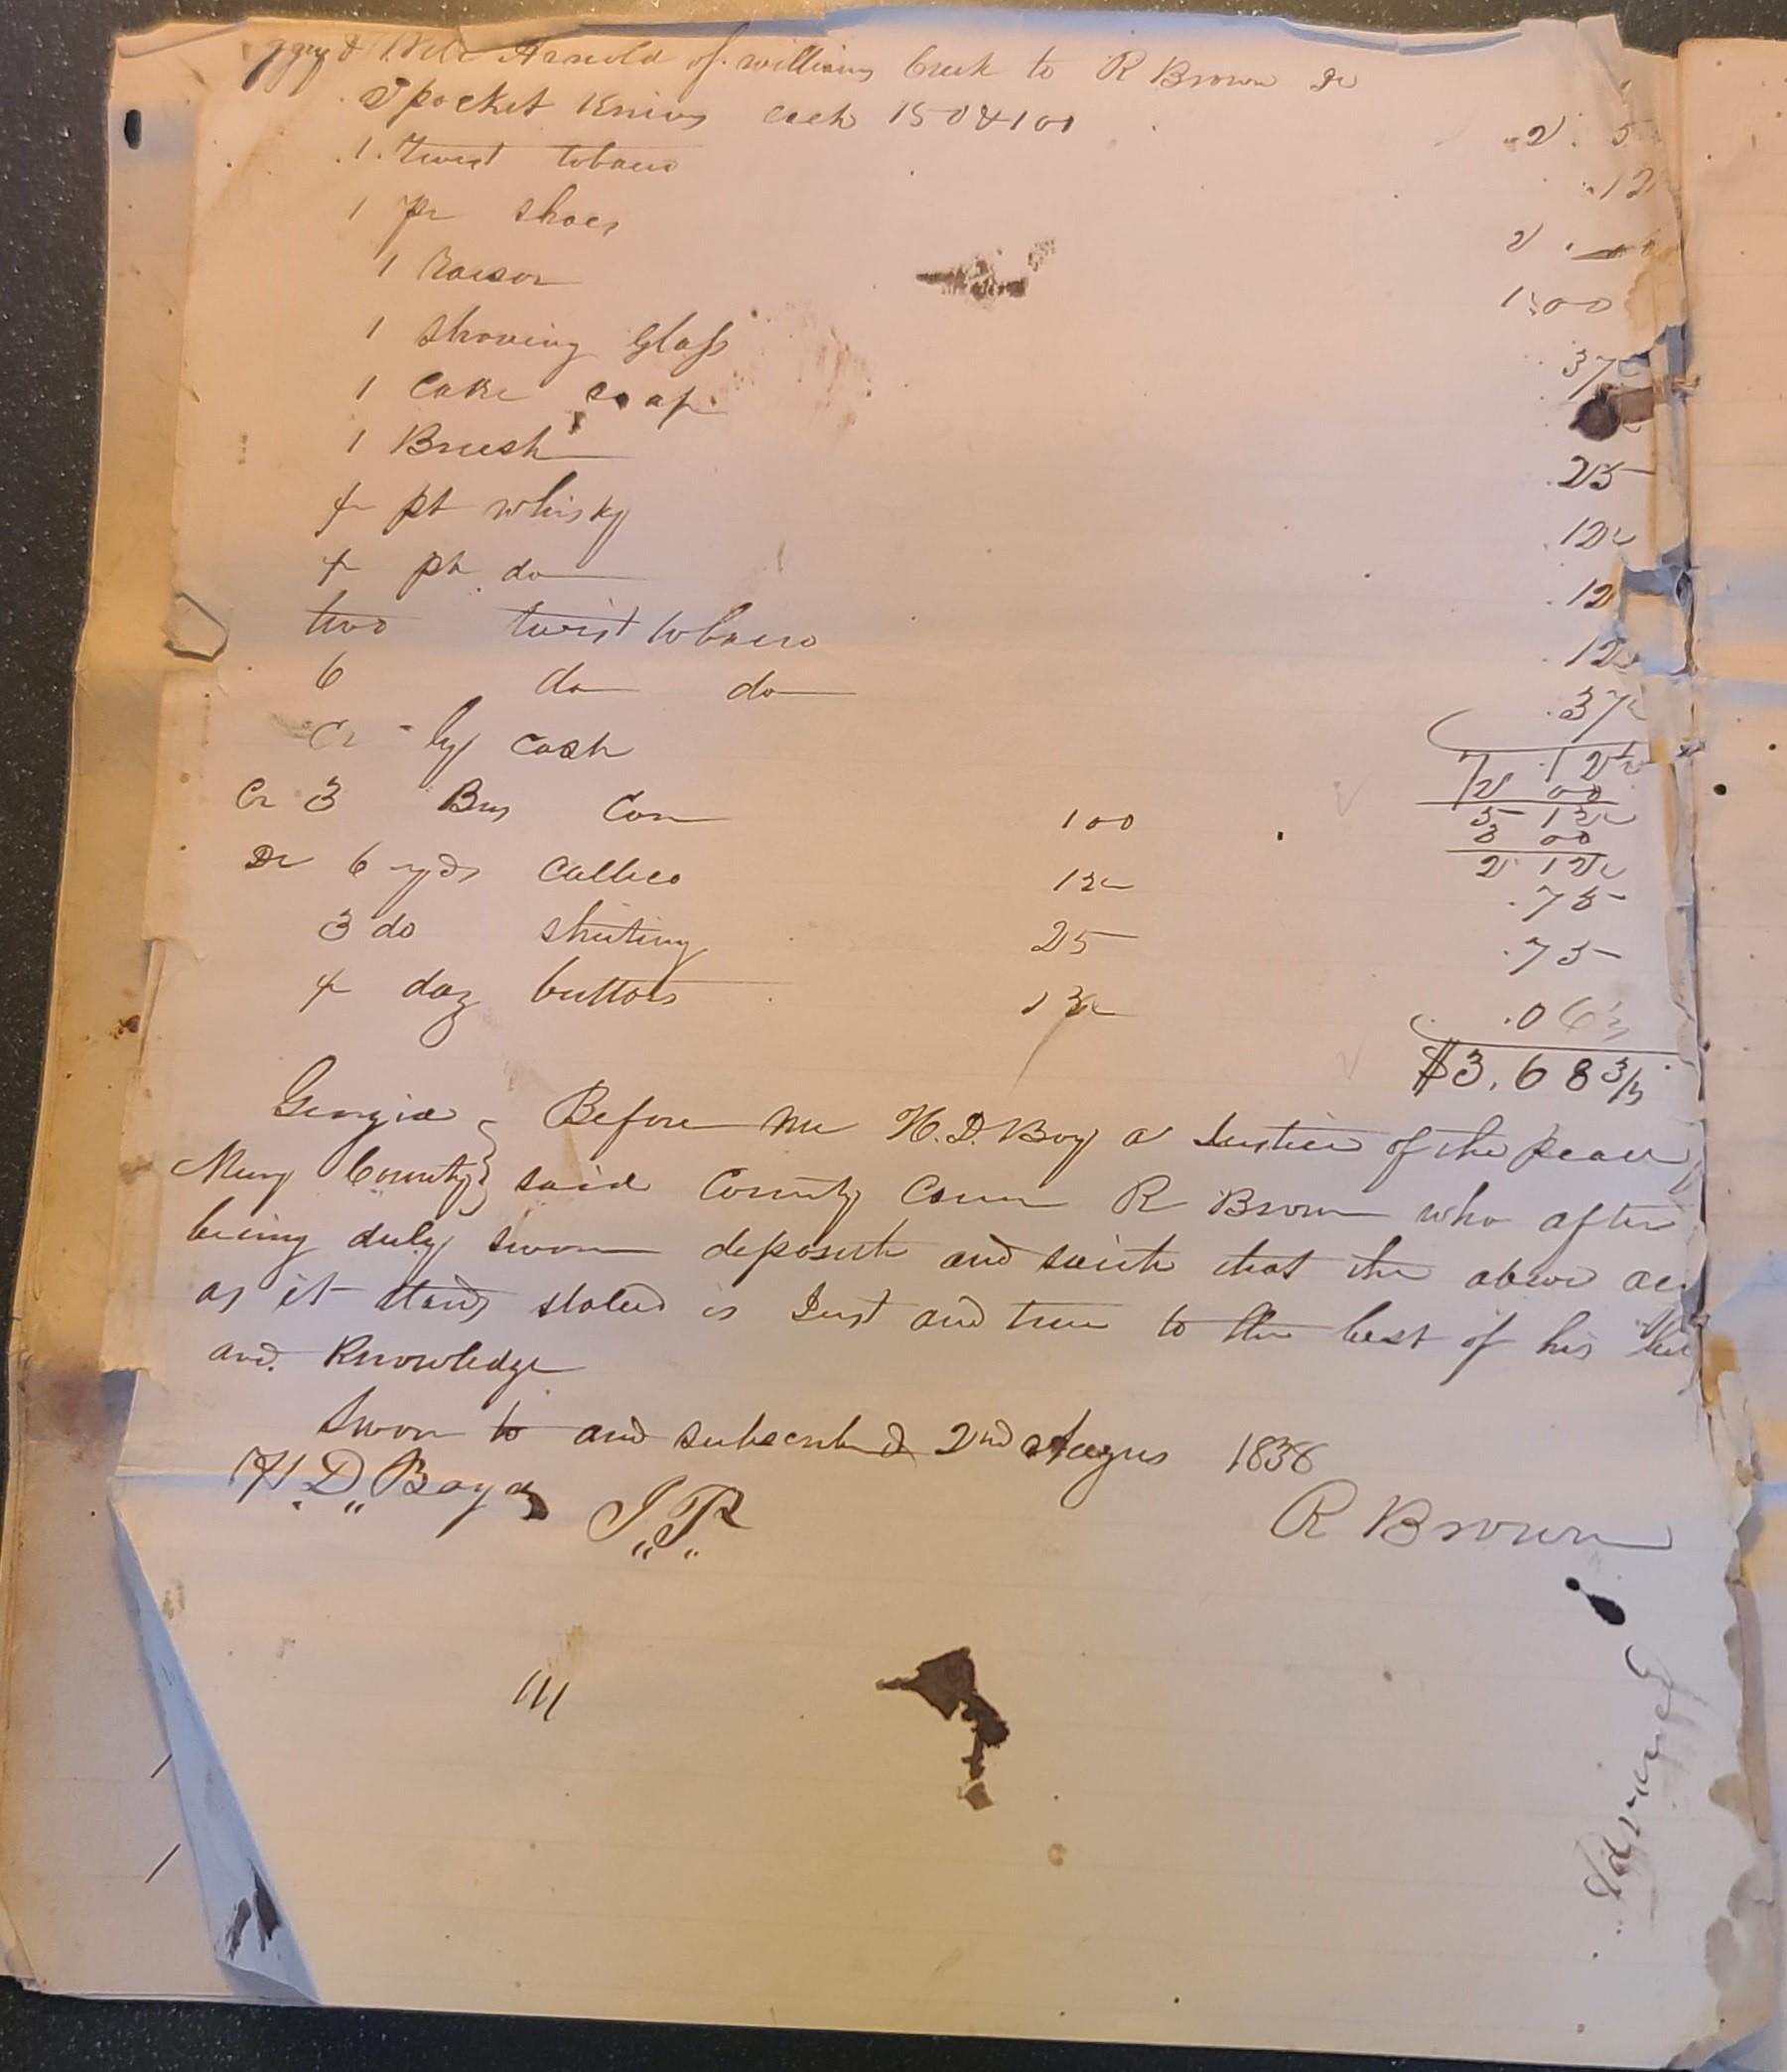 Arnold of williams Creek to R Brown Dr
2 pocket Knivs each 150 & 100 2. 5
1 Twist tobacco .12
1 Pr shoes 2.
1 Raisor 1.00
1 shaving Glass .37
1 Cake soap
1 Brush .25
pt whisky .12½
pt do .12
two twist tobacco .12
6 do do .37½
Cr by cash 7 .12½
2 00
5 12½
Cr 3 Bus Corn 100 3 00
2 12½
Dr 6 yds Callico 12½ .75
3 do shirting 25 .75
doz buttons 12½ .06
$3.68 3/4
Georgia } Before me H. D. Boyd a Justice of the peace
County } said County Came R Brown who after
being duly sworn deposeth and saith that the above acc
as it stands stated is Just and true to the best of his
and Knowledge
Sworn to and subscribed 2nd Augus 1838
H. D. Boyd J. P. R Brown